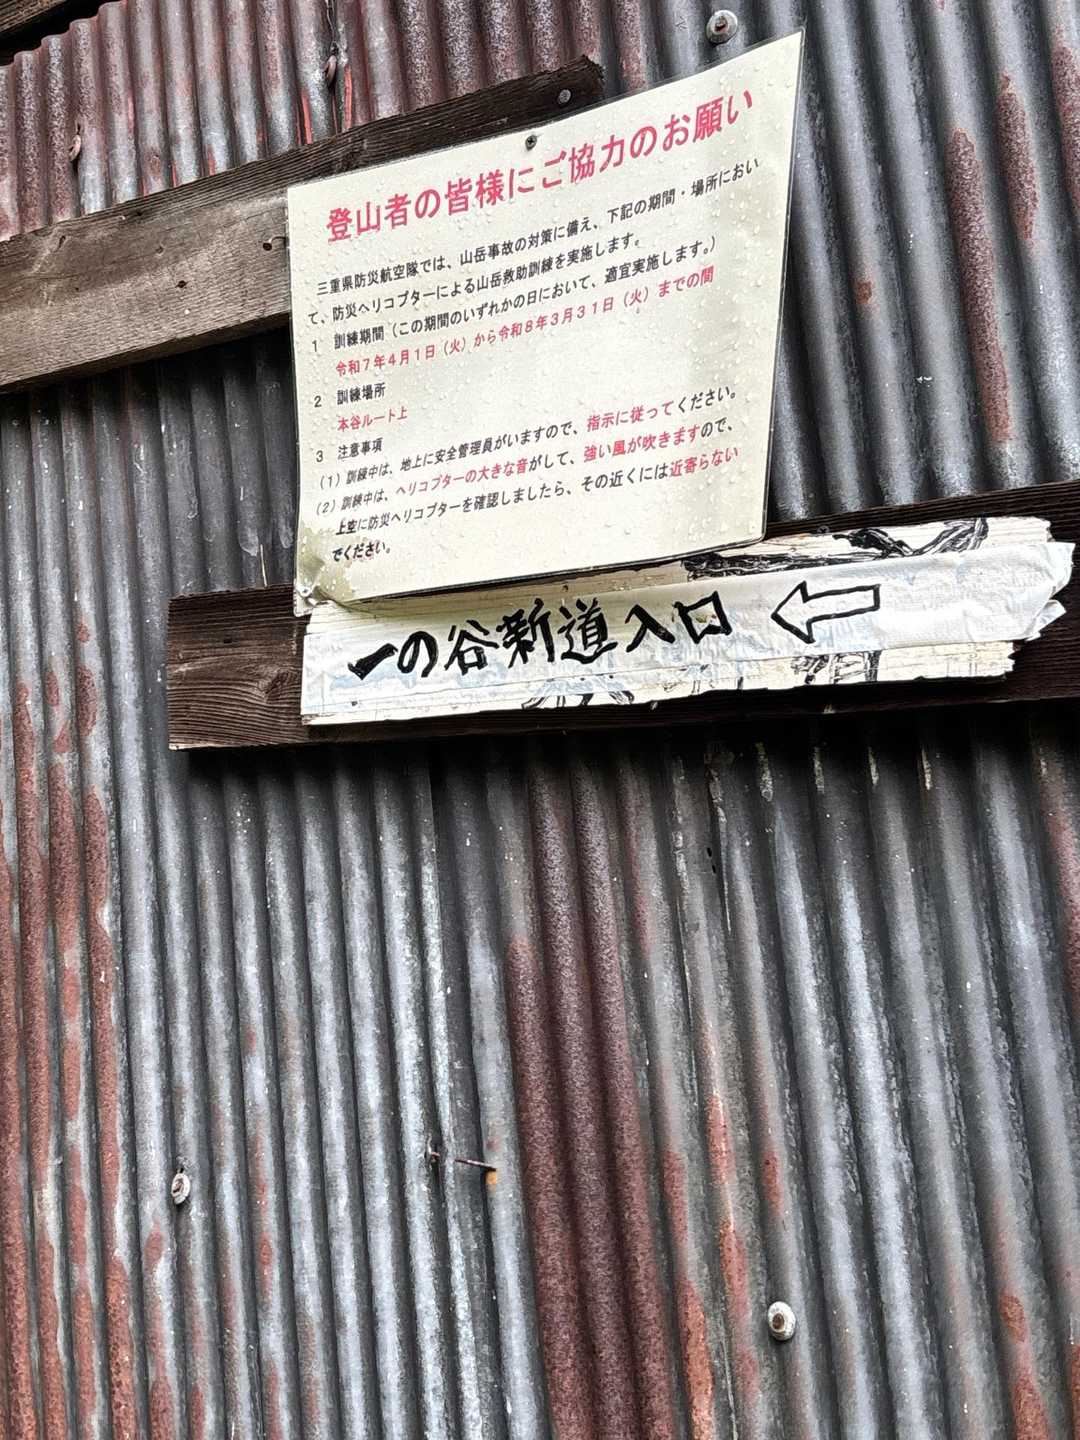 登山者の皆様にご協力のお願い
三重県防災航空隊では、山岳事故の対策に備え、下記の期間・場所におい
て、防災ヘリコプターによる山岳救助訓練を実施します。
1 訓練期間(この期間のいずれかの日において、適宜実施します。)
令和7年4月1日(火)から令和8年3月31日(火)までの間
2 訓練場所
本谷ルート上
3 注意事項
(1)訓練中は、地上に安全管理員がいますので、指示に従ってください。
(2)訓練中は、ヘリコプターの大きな音がして、強い風が吹きますので、
上空に防災ヘリコプターを確認しましたら、その近くには近寄らない
でください。
一の谷新道入口